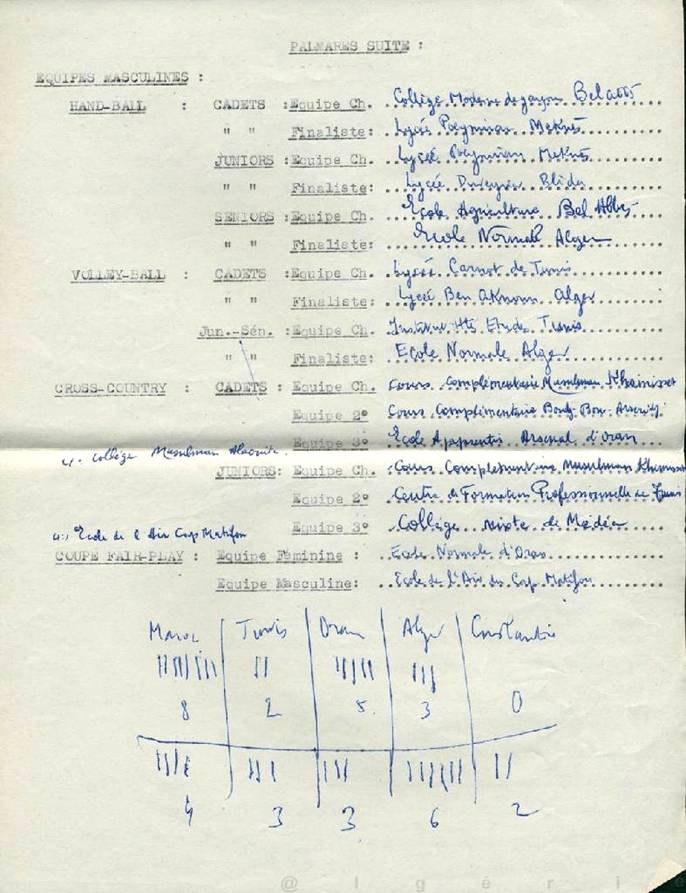 PALMARES SUITE :
EQUIPES MASCULINES :
HAND-BALL : CADETS :Equipe Ch. Collège Moderne de garçon Bel abbès
" " Finaliste: Lycée Poeymirau Meknès
JUNIORS :Equipe Ch. Lycée Poeymirau Meknès
" " Finaliste: Lycée Duveyrier Blida
SENIORS :Equipe Ch. Ecole Agriculture Bel Abbès
" " Finaliste: Ecole Normale Alger
VOLLEY-BALL : CADETS :Equipe Ch. Lycée Carnot de Tunis
" " Finaliste: Lycée Ben Aknoun Alger
Jun.-Sén. :Equipe Ch. Institut Htes Etudes Tunis
" " Finaliste: Ecole Normale Alger
CROSS-COUNTRY : CADETS : Equipe Ch. Cours Complémentaire Musulman Khemisset
Equipe 2° Cours Complémentaire
Equipe 3° Ecole Apprentis Arsenal d'Oran
4. Collège Musulman
JUNIORS: Equipe Ch. Cours Complémentaire Musulman
Equipe 2° Centre de Formation Professionnelle de Tunis
Equipe 3° Collège mixte de Médéa
4:) Ecole de l'Air Cap Matifou
COUPE FAIR-PLAY : Equipe Féminine : Ecole Normale d'Oran
Equipe Masculine: Ecole de l'Air du Cap Matifou
Maroc Tunis Oran Alger Constantine
8 2 5 3 0
4 3 3 6 2
@ l g é r i